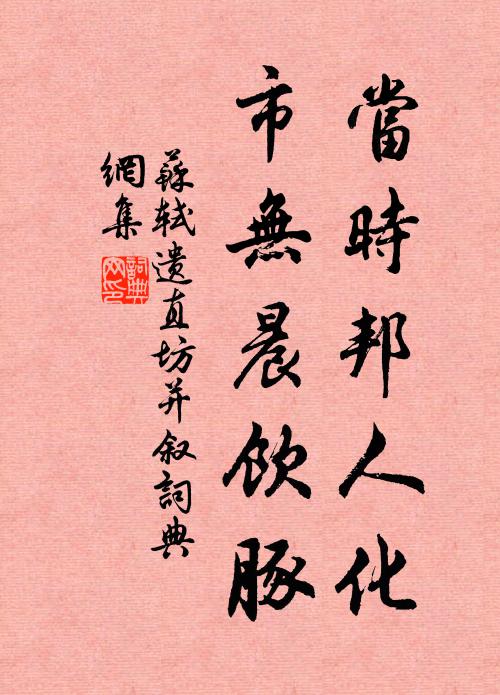 當時邦人化
市無晨飲豚
蘇軾遗直坊并叙詞典
網集
詞典網印